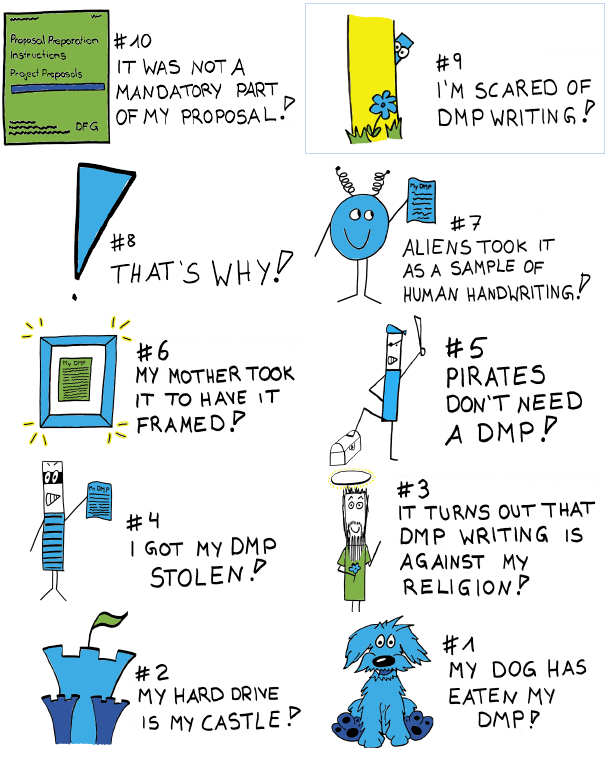 Proposal Preparation
Instructions
Project Proposals
DFG
#10
IT WAS NOT A
MANDATORY PART
OF MY PROPOSAL!
#9
I'M SCARED OF
DMP WRITING!
#8
THAT'S WHY!
My DMP
#7
ALIENS TOOK IT
AS A SAMPLE OF
HUMAN HANDWRITING!
My DMP
#6
MY MOTHER TOOK
IT TO HAVE IT
FRAMED!
#5
PIRATES
DON'T NEED
A DMP!
My DMP
#4
I GOT MY DMP
STOLEN!
#3
IT TURNS OUT THAT
DMP WRITING IS
AGAINST MY
RELIGION!
#2
MY HARD DRIVE
IS MY CASTLE!
#1
MY DOG HAS
EATEN MY
DMP!